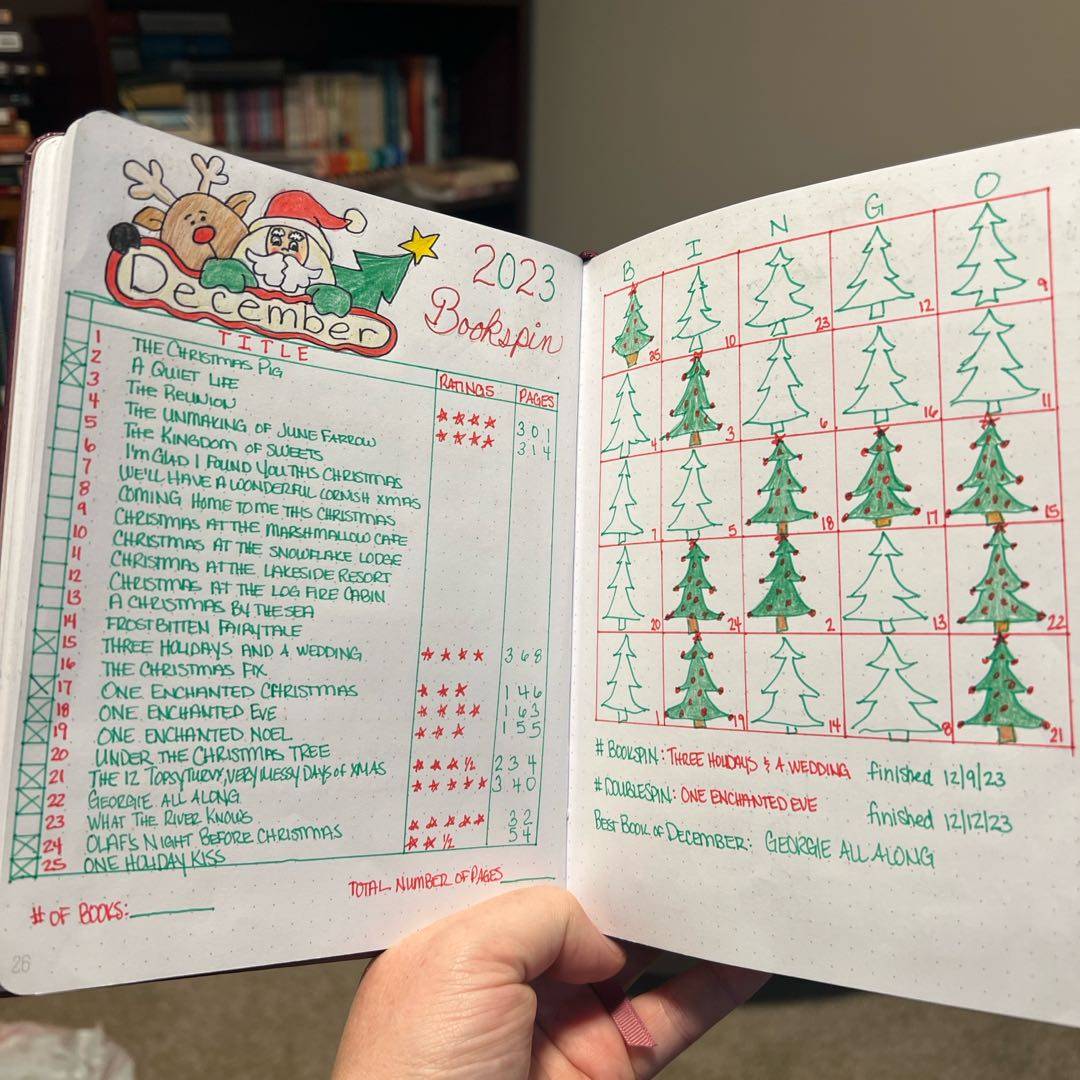 December
2023
Bookspin
TITLE RATINGS PAGES
1 THE CHRISTMAS PIG
2 A QUIET LIFE ★★★★ 301
3 THE REUNION ★★★★ 314
4 THE UNMAKING OF JUNE FARROW
5 THE KINGDOM OF SWEETS
6 I'M GLAD I FOUND YOU THIS CHRISTMAS
7 WE'LL HAVE A WONDERFUL CORNISH XMAS
8 COMING HOME TO ME THIS CHRISTMAS
9 CHRISTMAS AT THE MARSHMALLOW CAFE
10 CHRISTMAS AT THE SNOWFLAKE LODGE
11 CHRISTMAS AT THE LAKESIDE RESORT
12 CHRISTMAS AT THE LOG FIRE CABIN
13 A CHRISTMAS BY THE SEA
14 FROSTBITTEN FAIRYTALE
15 THREE HOLIDAYS AND A WEDDING ★★★★ 368
16 THE CHRISTMAS FIX
17 ONE ENCHANTED CHRISTMAS ★★★ 146
18 ONE ENCHANTED EVE ★★★★ 163
19 ONE ENCHANTED NOEL ★★★ 155
20 UNDER THE CHRISTMAS TREE
21 THE 12 TOPSY TURVY, VERY MESSY DAYS OF XMAS ★★★½ 234
22 GEORGIE ALL ALONG ★★★★★ 340
23 WHAT THE RIVER KNOWS
24 OLAF'S NIGHT BEFORE CHRISTMAS ★★★★★ 32
25 ONE HOLIDAY KISS ★★½ 54
TOTAL NUMBER OF PAGES
# OF BOOKS:
26
B I N G O
25 10 23 12 9
4 3 6 16 11
7 5 18 17 15
20 24 2 13 22
1 19 14 8 21
# BOOKSPIN: THREE HOLIDAYS & A WEDDING finished 12/9/23
# DOUBLESPIN: ONE ENCHANTED EVE finished 12/12/23
BEST BOOK OF DECEMBER: GEORGIE ALL ALONG